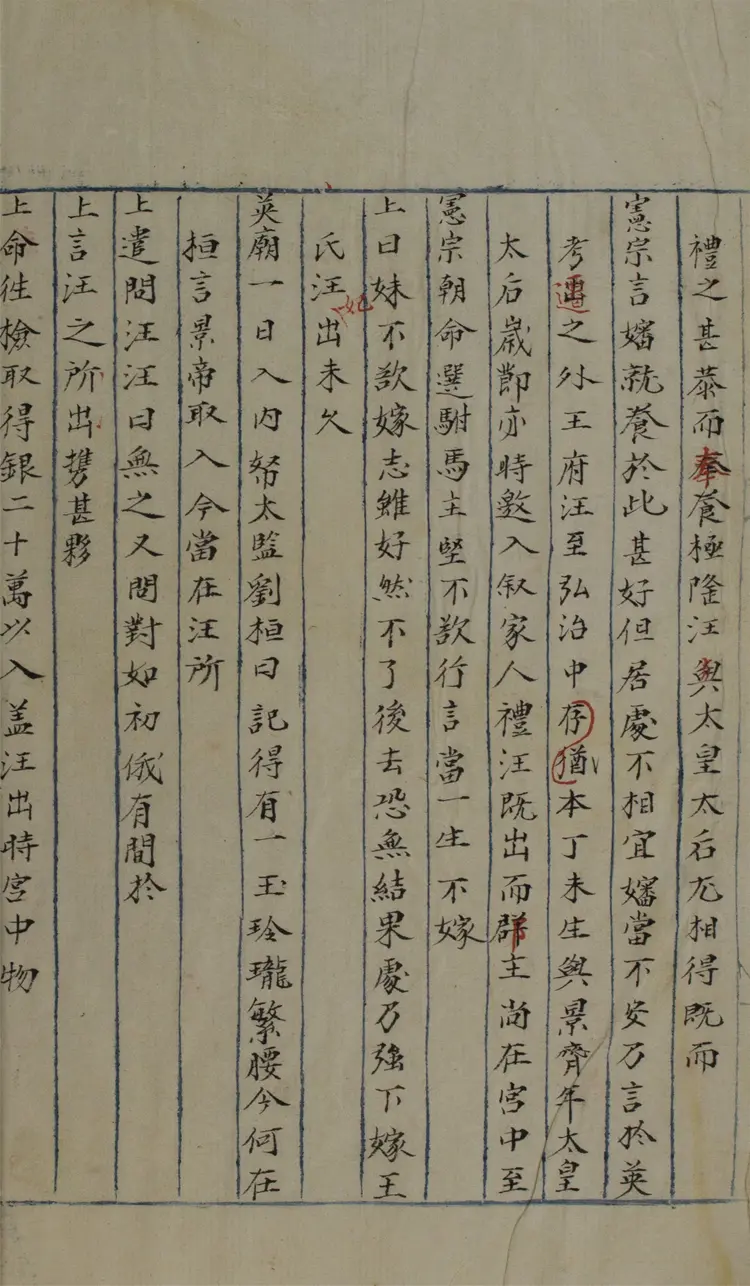 禮之甚恭而奉養極隆汪與太皇太后尤相得既而
憲宗言嬸就養於此甚好但居處不相宜嬸當不安乃言於英
考遷之外王府汪至弘治中存猶本丁未生與景齊年太皇
太后歲節亦時邀入叙家人禮汪既出而郡主尚在宮中至
憲宗朝命選駙馬主堅不欲行言當一生不嫁
上曰妹不欲嫁志雖好然不了後去恐無結果處乃強下嫁王
氏汪妃出未久
英廟一日入內帑太監劉桓曰記得有一玉玲瓏繫腰今何在
桓言景帝取入今當在汪所
上遣問汪汪曰無之又問對如初俄有間於
上言汪之所出攜甚夥
上命往檢取得銀二十萬以入盖汪出時宮中物